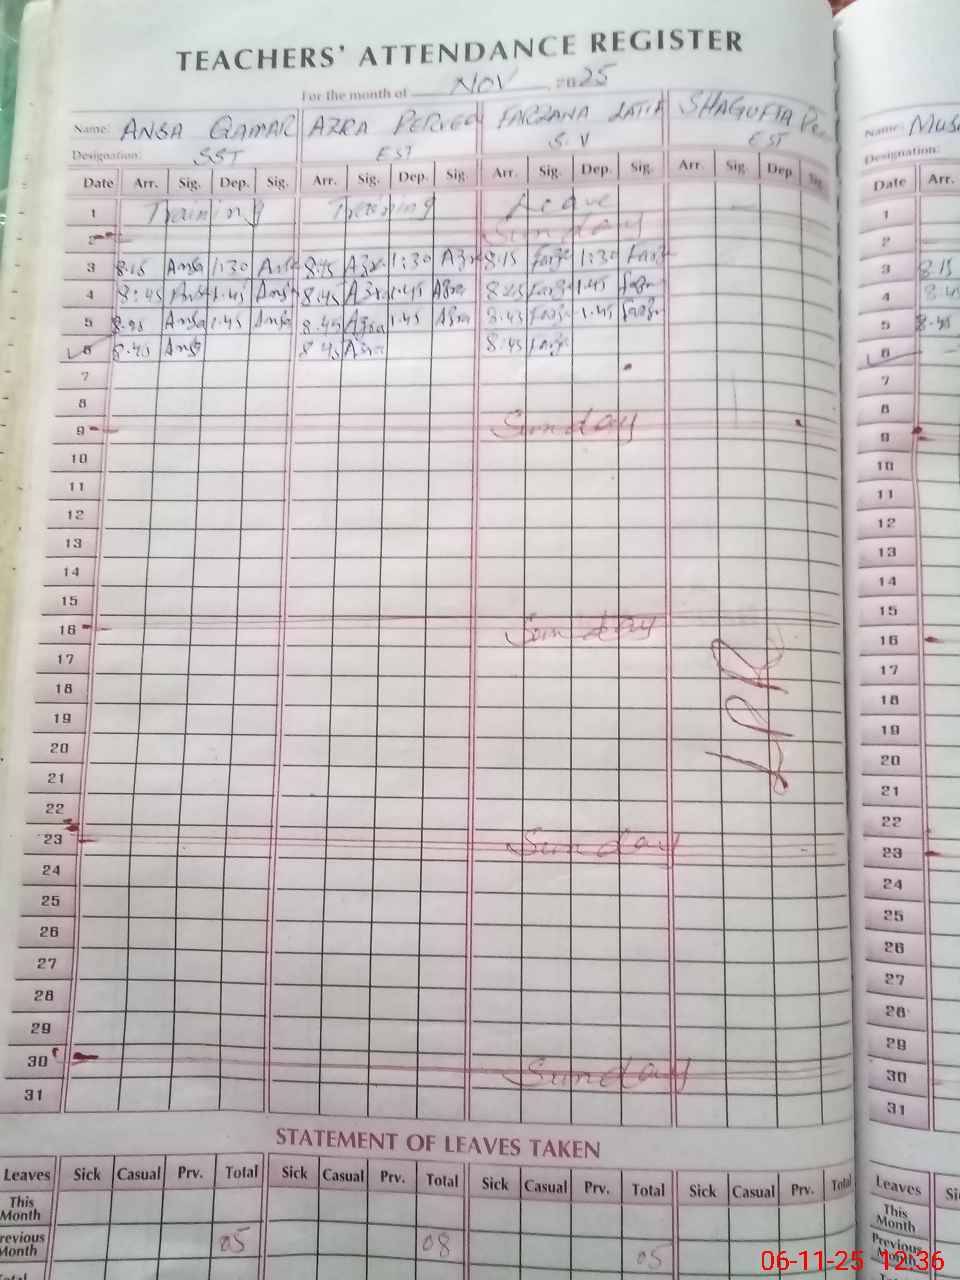 TEACHERS' ATTENDANCE REGISTER
For the month of NOV 2025
Name: ANSA QAMAR AZRA PERVEEN FARZANA LATIF SHAGUFTA Name:
Designation: SST EST S.V EST Designation:
Date Arr. Sig. Dep. Sig. Arr. Sig. Dep. Sig. Arr. Sig. Dep. Sig. Arr. Sig. Dep. Sig. Date Arr.
1 Training Training Leave 1
2 Sunday 2
3 8:15 Ansa 1:30 Ansa 8:15 Azra 1:30 Azra 8:15 Farz 1:30 Farz 3 8:15
4 8:45 Ansa 1.45 Ansa 8:45 Azra 1.45 Azra 8:45 Farz 1.45 4 8:45
5 8.45 Ansa 1.45 Ansa 8.45 Azra 1.45 Azra 8.45 Farz 1.45 5 8.45
6 8.45 Ansa 8.45 Azra 8:45 Farz 6
7 7
8 8
9 Sunday 9
10 10
11 11
12 12
13 13
14 14
15 15
16 Sunday 16
17 LPR 17
18 18
19 19
20 20
21 21
22 22
23 Sunday 23
24 24
25 25
26 26
27 27
28 28
29 29
30 Sunday 30
31 31
STATEMENT OF LEAVES TAKEN
Leaves Sick Casual Prv. Total Sick Casual Prv. Total Sick Casual Prv. Total Sick Casual Prv. Total Leaves
This Month This Month
Previous Month 05 08 05 Previous Month
06-11-25 12:36